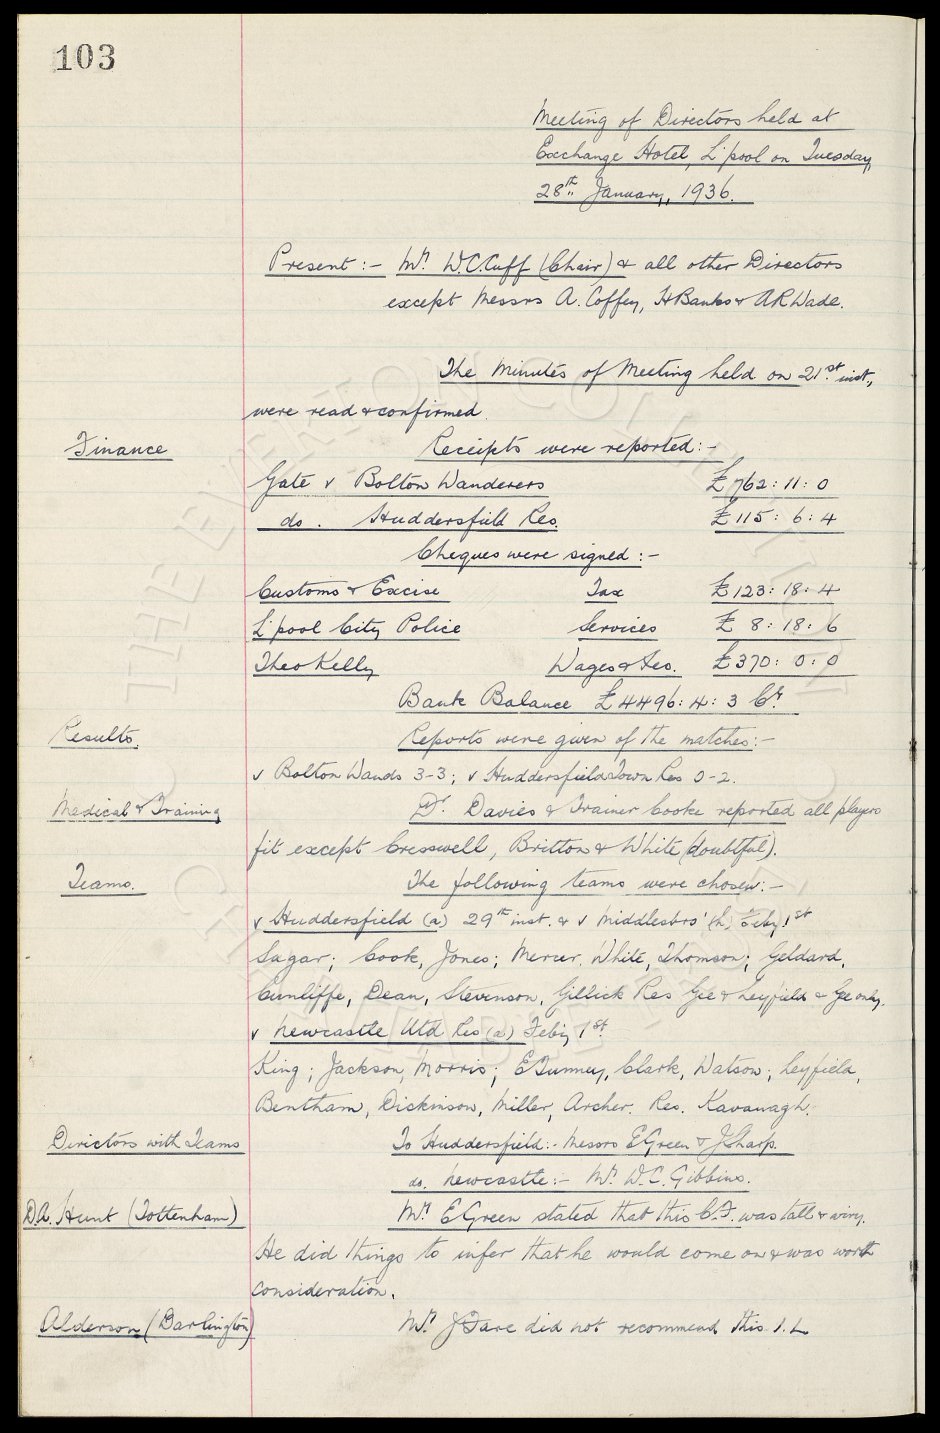 103
Meeting of Directors held at
Exchange Hotel, L'pool on Tuesday,
28th January, 1936.
Present :- Mr. W.C. Cuff (Chair) & all other Directors
except Messrs A. Coffey, H Banks & A R Wade.
The Minutes of Meeting held on 21st inst.,
were read & confirmed.
Finance
Receipts were reported:-
Gate v Bolton Wanderers £762 : 11 : 0
do. Huddersfield Res. £115 : 6 : 4
Cheques were signed :-
Customs & Excise Tax £123 : 18 : 4
L'pool City Police Services £ 8 : 18 : 6
Theo Kelly Wages & Fes. £370 : 0 : 0
Bank Balance £4496 : 4 : 3 Cr.
Results.
Reports were given of the matches:-
v Bolton Wands 3-3; v Huddersfield Town Res 0-2.
Medical & Training
Dr. Davies & Trainer Cooke reported all players
fit except Cresswell, Britton & White (doubtful).
Teams.
The following teams were chosen:-
v Huddersfield (a) 29th inst. & v Middlesbro' (h) Feby 1st
Sagar; Cook, Jones; Mercer, White, Thomson; Geldard,
Cunliffe, Dean, Stevenson, Gillick Res Gee & Leyfield & Gee only.
v Newcastle Utd Res (a) Feby 1st
King; Jackson, Morris; E Tunney, Clark, Watson; Leyfield,
Bentham, Dickinson, Miller, Archer. Res. Kavanagh.
Directors with Teams
To Huddersfield:- Messrs E Green & J Sharp.
do. Newcastle:- Mr. W.C. Gibbins.
D.A. Hunt (Tottenham)
Mr. E Green stated that this C.F. was tall & wiry.
He did things to infer that he would come on & was worth
consideration.
Alderson (Darlington)
Mr. J Fare did not recommend this I.L
THE EVERTON FOOTBALL